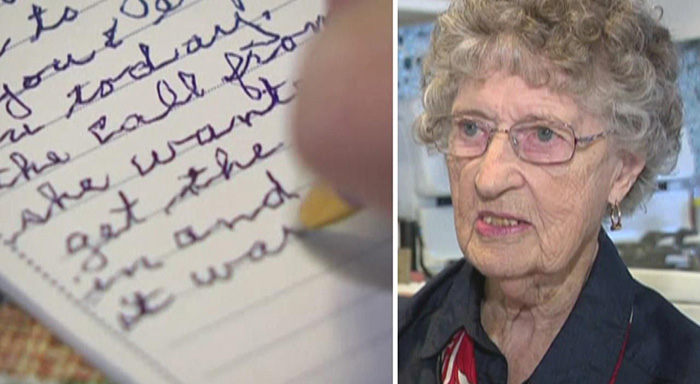 to
you
today.
the call from
she want
get the
in and
it was